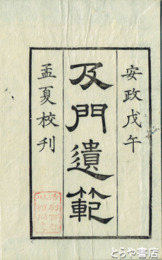 安政戊午
及門遺範
孟夏校刊
とらや書店